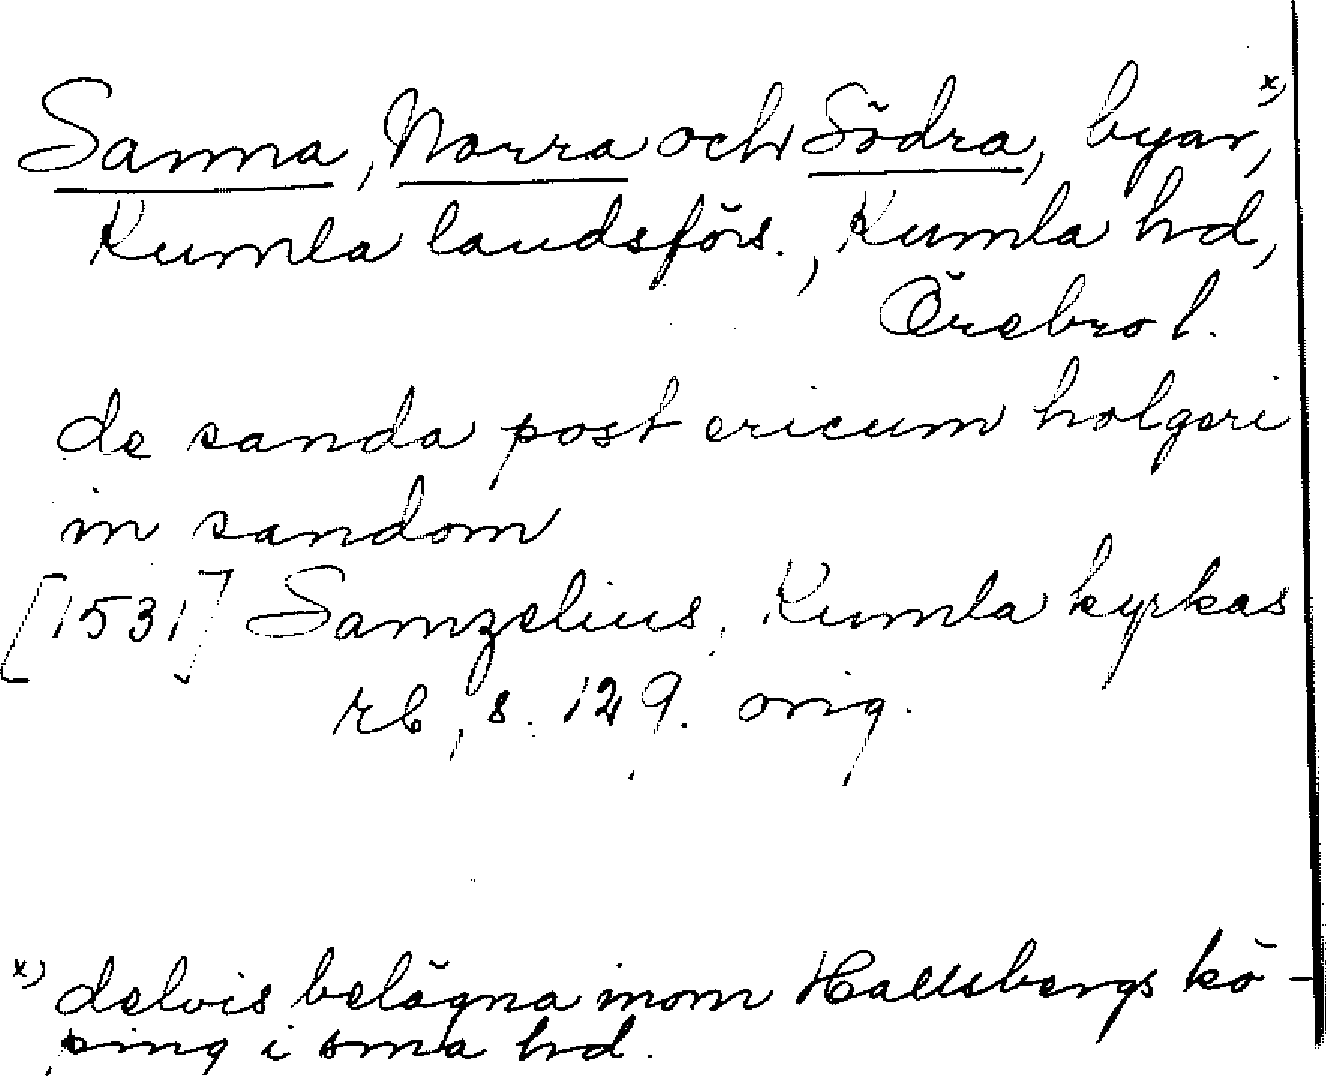 Sanna, Norra och Södra, byar,x)
Kumla landsförs., Kumla hd,
Örebro l.
de sanda post ericum holgeri
in sandom
[1531] Samzelius, Kumla kyrkas
rb, s. 129. orig.
x) delvis belägna inom Hallsbergs kö-
ping i sma hd.